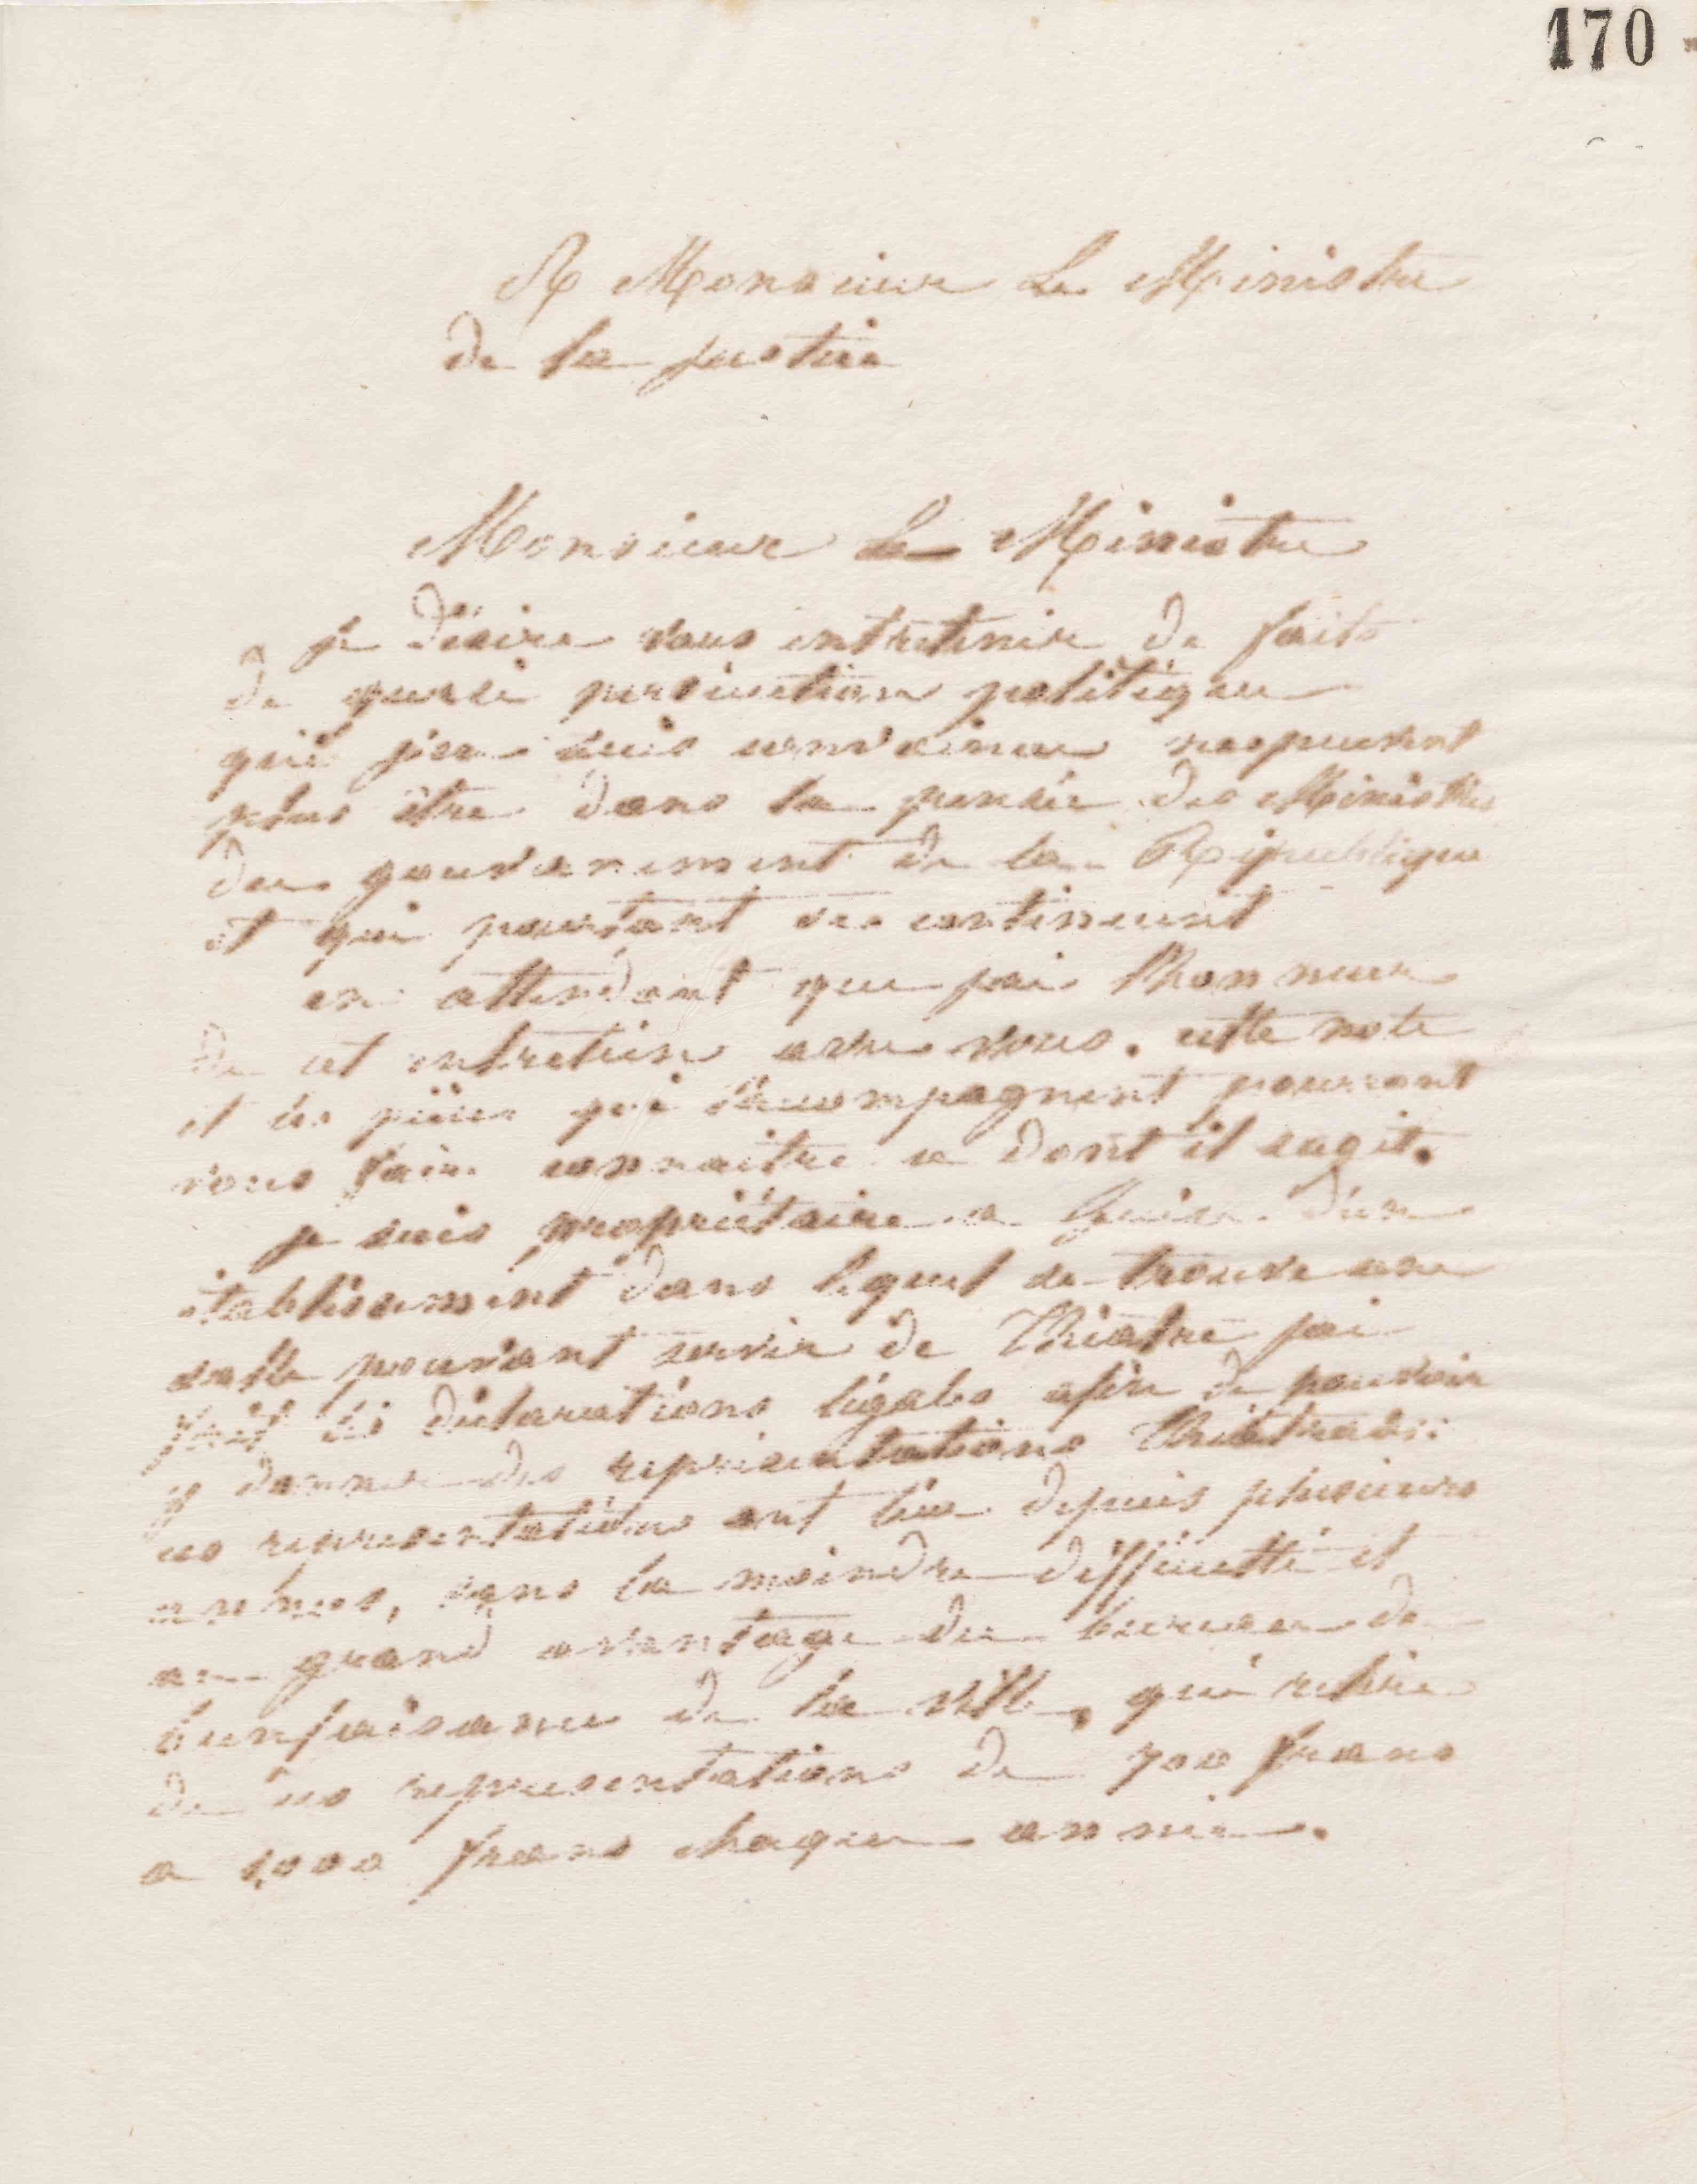 170
A Monsieur Le Ministre
de la justice
Monsieur Le Ministre
je désire vous entretenir de faits
de quasi persécution politique
qui j'en suis convaincu ne peuvent
plus être dans la pensée des Ministres
du gouvernement de la République
et qui pourtant se continuent
en attendant que j'ai l'honneur
de cet entretien avec vous. cette note
et les pièces qui l'accompagnent pourront
vous faire connaitre ce dont il sagit.
je suis propriétaire a Guise d'un
établissement dans lequel se trouve une
salle pouvant servir de Théatre j'ai
fait les déclarations légales afin de pouvoir
y donner des représentations Théatrales:
ces representations ont lieu depuis plusieurs
années, sans la moindre difficulté et
au grand avantage du bureau de
bienfaisance de la ville, qui retire
de ces representations de 700 francs
a 1,000 francs chaque année.